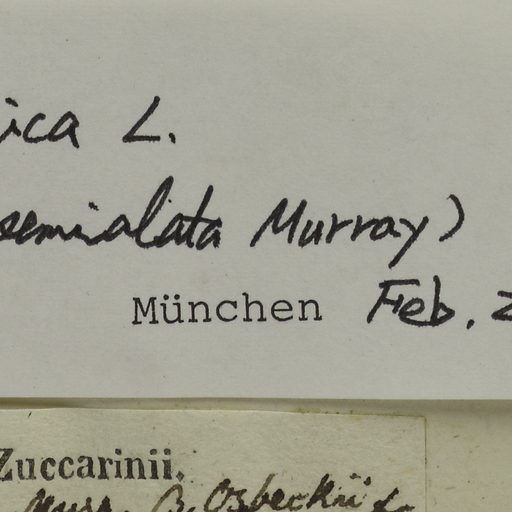 ica L.
semialata Murray)
München Feb. 2
Zuccarinii.
Murr. B. Osbeckii